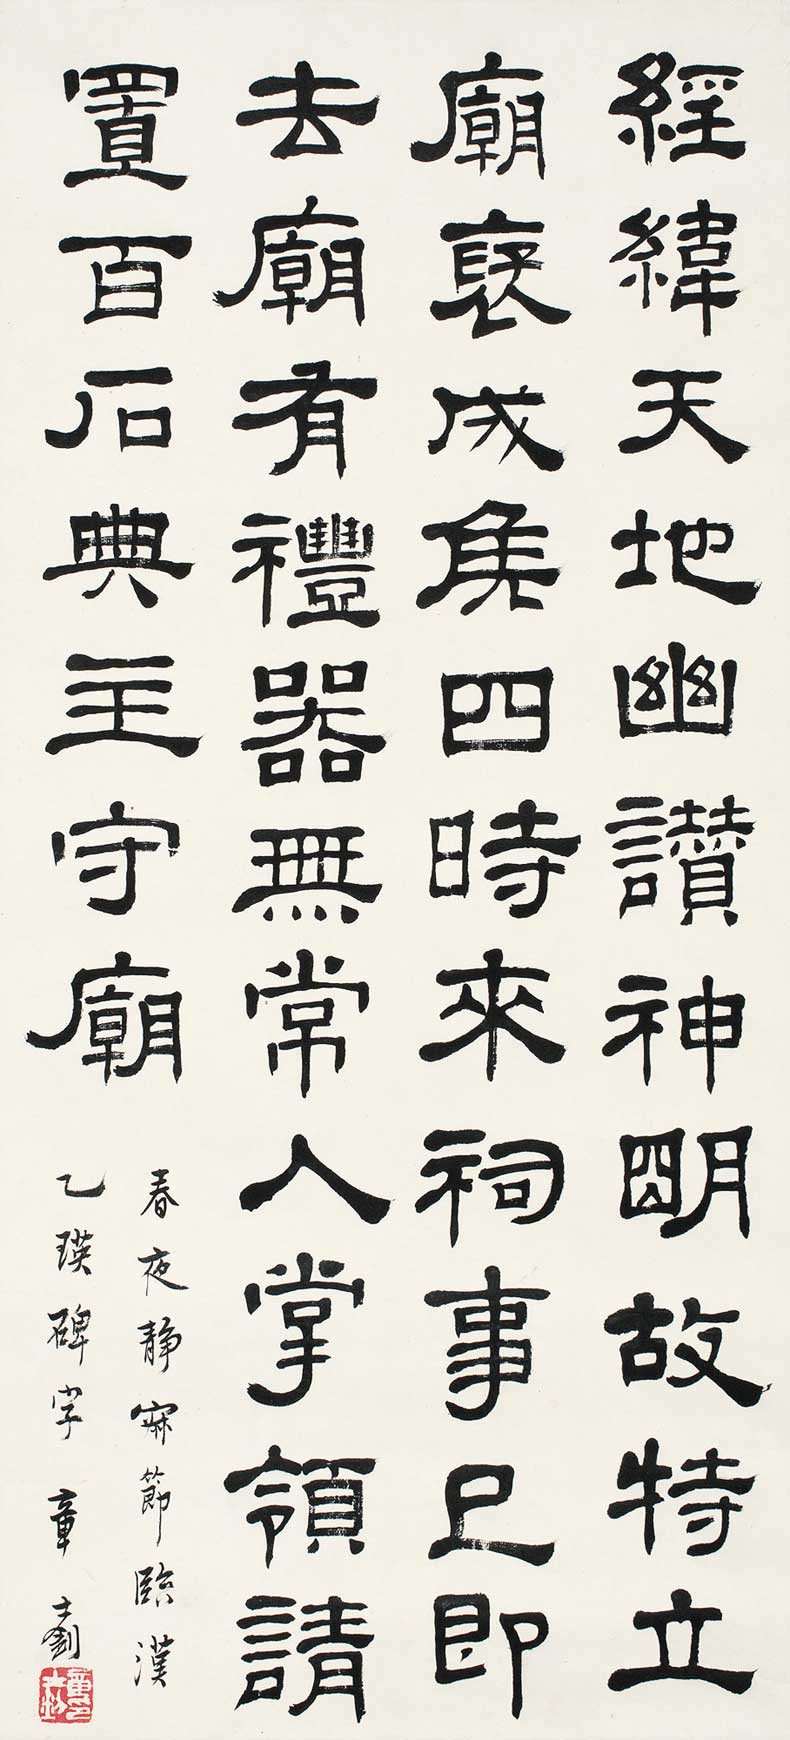 經緯天地幽讚神明故特立
廟褒成侯四時來祠事已即
去廟有禮器無常人掌領請
置百石典主守廟
春夜静寂節臨漢
乙瑛碑字 章士釗